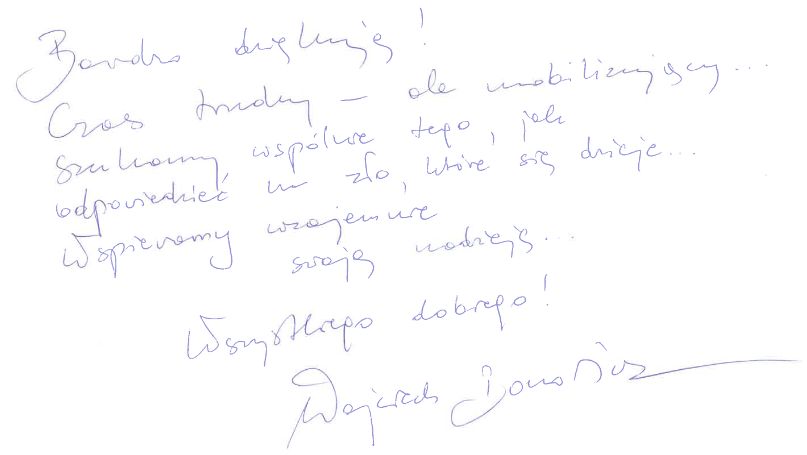 Bardzo dziękuję!
Czas trudny – ale mobilizujący...
Szukamy wspólnie tego, jak
odpowiedzieć na zło, które się dzieje...
Wspieramy wzajemnie
swoją nadzieję...
Wszystkiego dobrego!
Wojciech Bonowicz